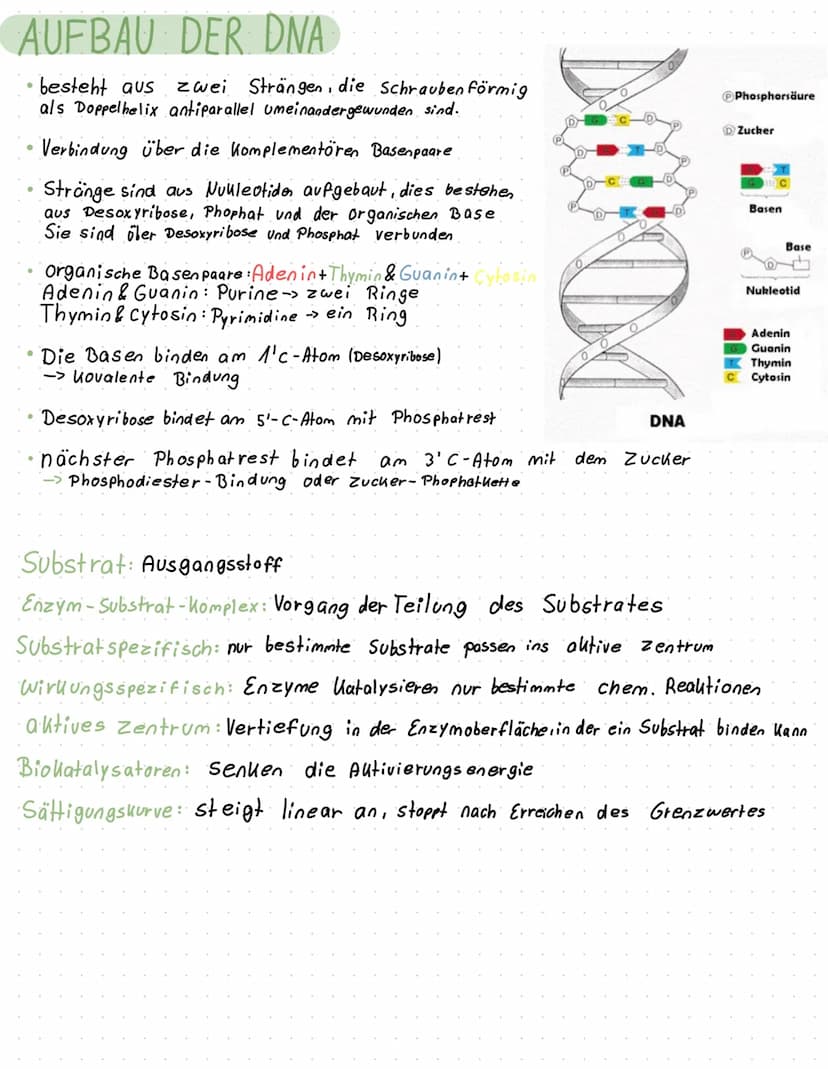 AUFBAU DER DNA
• besteht aus zwei Strängen, die Schraubenförmig
als Doppelhelix antiparallel umeinandergewunden sind.
• Verbindung über die Komplementören Basenpaare
• Stränge sind aus Nukleotiden aufgebaut, dies bestehen
aus Desoxyribose, Phophat und der organischen Base
Sie sind über Desoxyribose und Phosphat verbunden
• organische Basenpaare: Adenin+Thymin & Guanin+ Cytosin
Adenin & Guanin: Purine -> zwei Ringe
Thymin & Cytosin: Pyrimidine -> ein Ring
• Die Basen binden am 1'c-Atom (Desoxyribose)
-> Kovalente Bindung
• Desoxyribose bindet am 5'-C-Atom mit Phosphatrest
• nächster Phosphatrest bindet am 3'C-Atom mit dem Zucker
-> Phosphodiester-Bindung oder Zucker-Phophatkette
P Phosphorsäure
D Zucker
A T
G C
Basen
Base
P
D
Nukleotid
A Adenin
G Guanin
T Thymin
C Cytosin
DNA
Substrat: Ausgangsstoff
Enzym-Substrat-Komplex: Vorgang der Teilung des Substrates
Substratspezifisch: nur bestimmte Substrate passen ins aktive Zentrum
wirkungsspezifisch: Enzyme Katalysieren nur bestimmte chem. Reaktionen
aktives Zentrum: Vertiefung in der Enzymoberfläche, in der ein Substrat binden kann
Biokatalysatoren: senken die Aktivierungsenergie
Sättigungskurve: steigt linear an, stoppt nach Erreichen des Grenzwertes